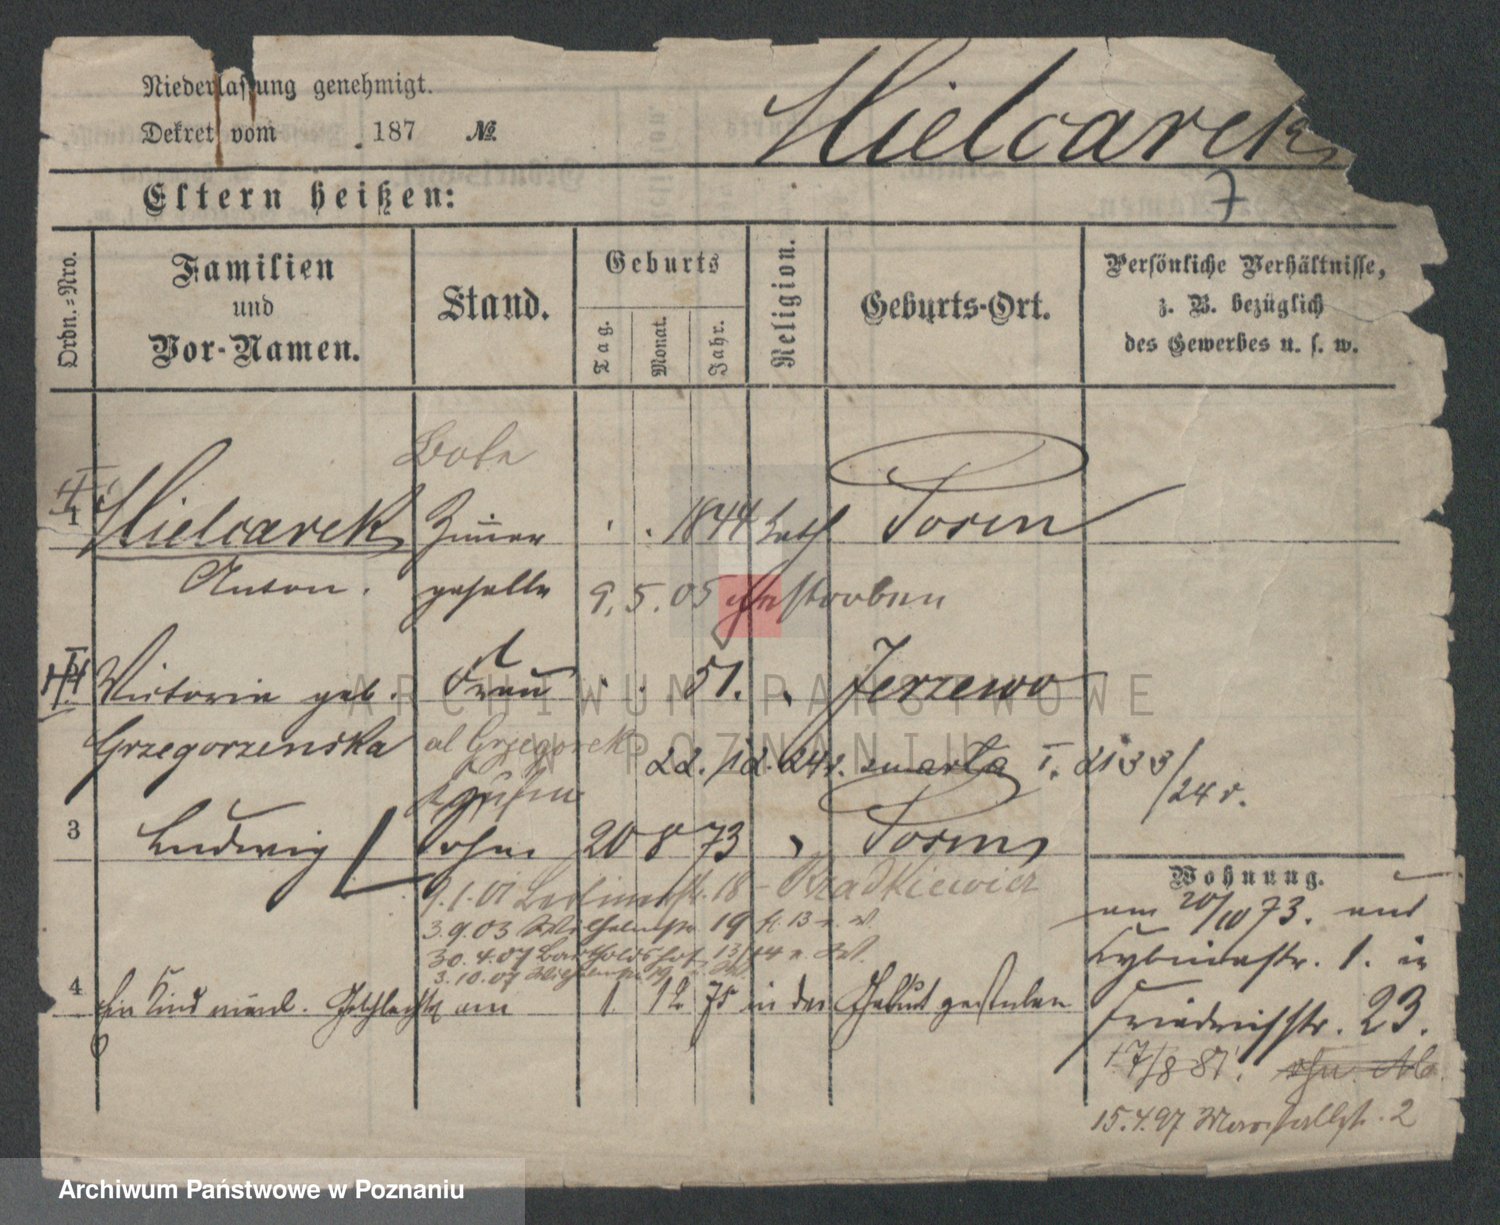 Niederlassung genehmigt.
Dekret vom . 187 №
Hielcarek
7
Eltern heißen:
Ordn.=Nro.
Familien
und
Vor-Namen.
Stand.
Geburts
Tag.
Monat.
Jahr.
Religion.
Geburts-Ort.
Persönliche Verhältnisse,
z. B. bezüglich
des Gewerbes u. s. w.
Bote
1 Hielcarek Zimer . . 1844 kath Posen
Anton. geselle 9. 5. 05 gestorben
Victoria geb. Frau . . 51. Jerzewo
Grzegorzenska al Grzegorek 22. 12. 24r. zmarła I. 2133/24 r.
3 Ludwig Sohn 20 8 73 Posen
9.1.01 18 - Bradkiewicz
3.9.03 Wilhelmstr. 19
30.4.07 Bartholdshof 13/14
3.10.07
4 Ein Kind männl. Geschlechts am 1 12 75 in der Geburt gestorben
Wohnung.
am 20/10 73. aus
Cybinastr. 1. in
Friedrichstr. 23.
17/8 81.
15.4.97 Marschallstr. 2
ARCHIWUM PAŃSTWOWE
W POZNANIU
Archiwum Państwowe w Poznaniu